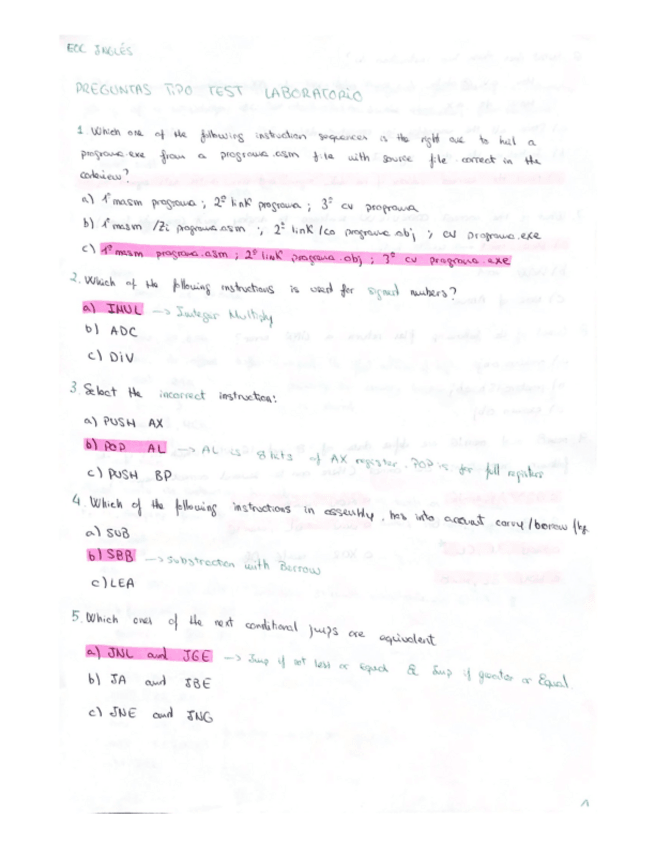 ECC INGLÉS
PREGUNTAS TIPO TEST LABORATORIO
1. Which one of the following instruction sequences is the right one to
programa.exe from a programa.asm file with source file correct in the
codeview?
a) 1º masm programa ; 2º link programa ; 3º cv programa
b) 1º masm /Zi programa.asm ; 2º link /co programa.obj ; cv programa.exe
c) 1º masm programa.asm ; 2º link programa.obj ; 3º cv programa.exe
2. Which of the following instructions is used for signed numbers?
a) IMUL -> Integer Multiply
b) ADC
c) DIV
3. Select the incorrect instruction:
a) PUSH AX
b) POP AL -> AL is 8 bits of AX register. POP is for full registers
c) PUSH BP
4. Which of the following instructions in assembly, has into account carry/borrow
a) SUB
b) SBB -> Substraction with Borrow
c) LEA
5. Which ones of the next conditional jumps are equivalent
a) JNL and JGE -> Jump if not less or equal & Jump if greater or Equal.
b) JA and JBE
c) JNE and JNG
1